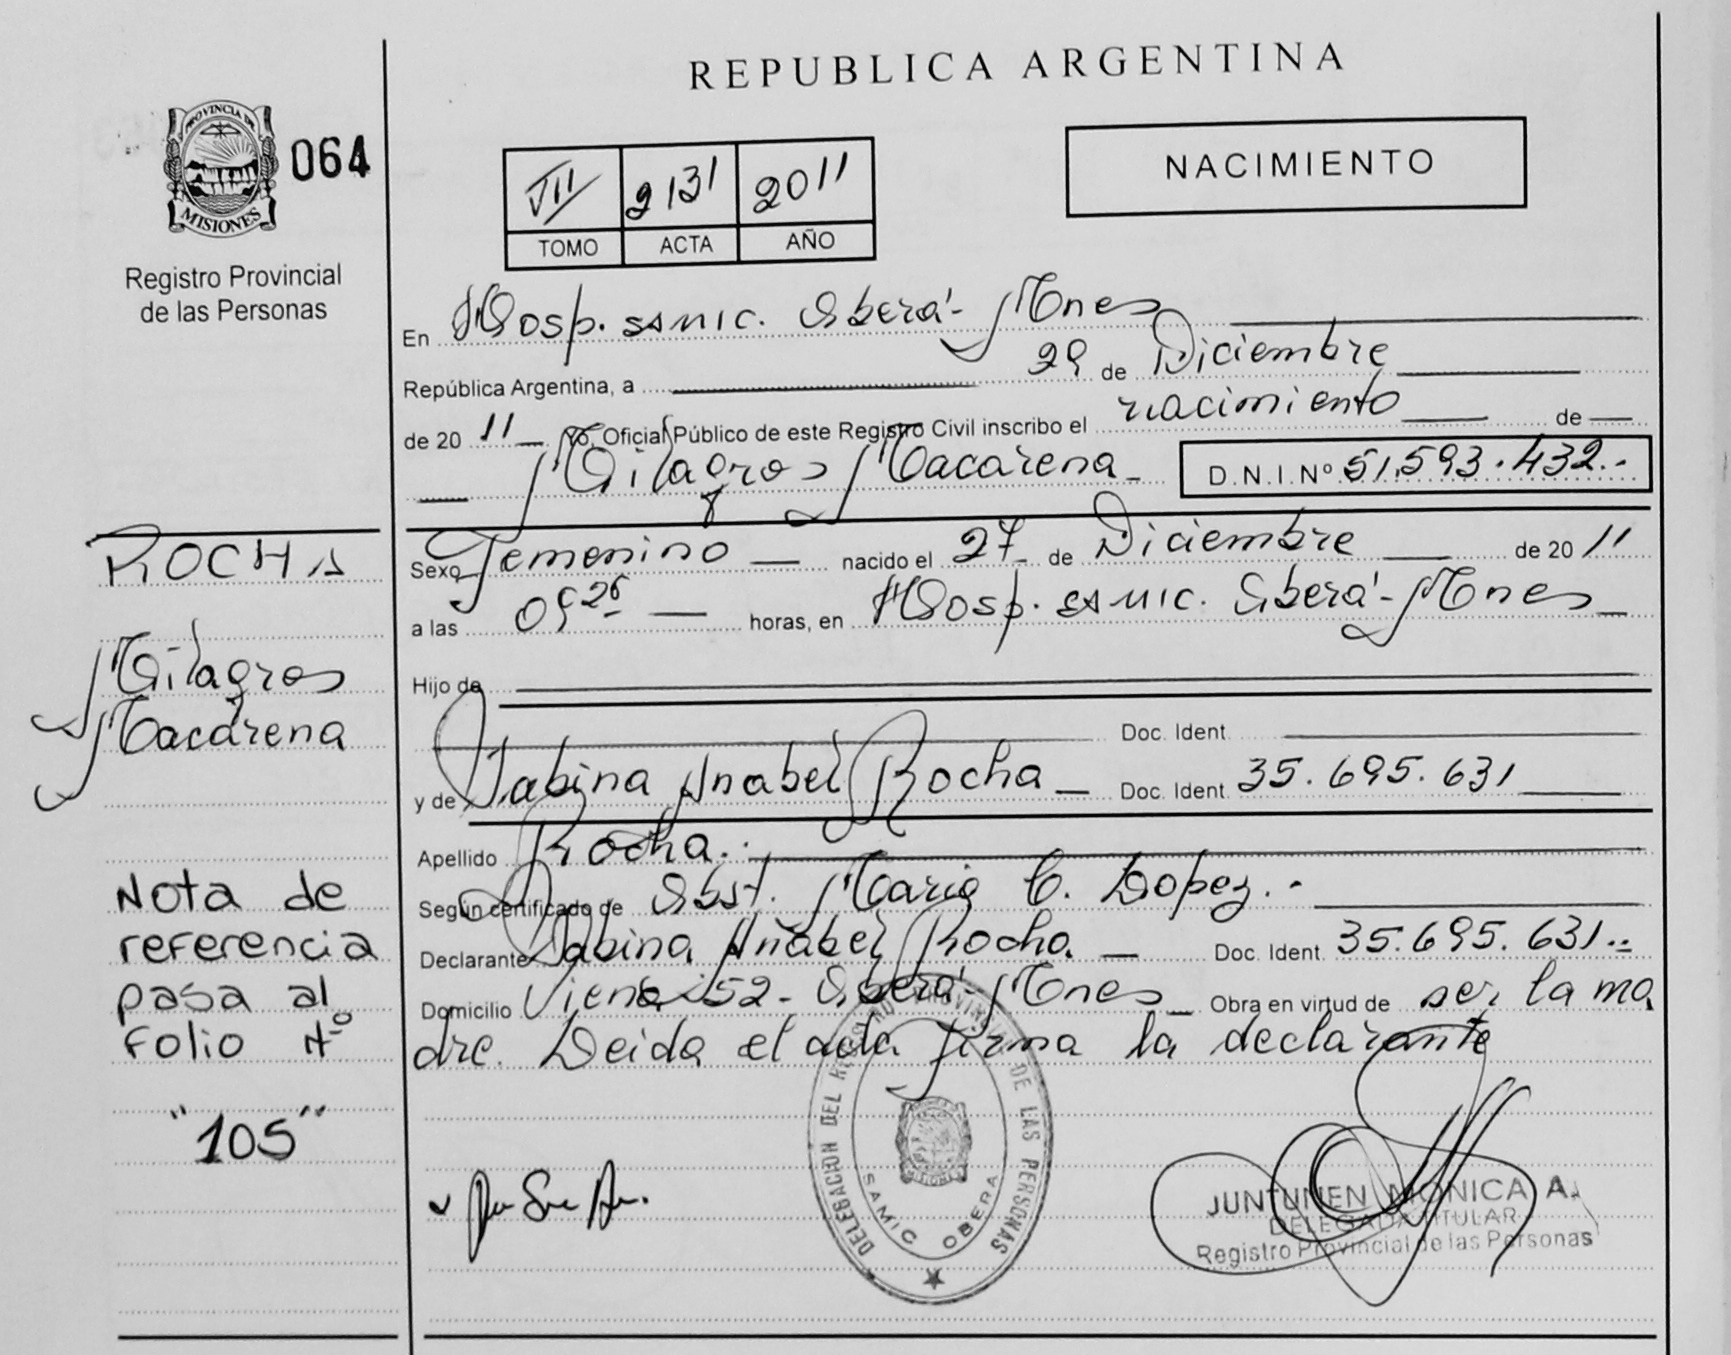 REPUBLICA ARGENTINA
PROVINCIA DE
MISIONES
064
Registro Provincial
de las Personas
VII 2131 2011
TOMO ACTA AÑO
NACIMIENTO
En Hosp. SAMIC. Oberá - Mnes
República Argentina, a 29 de Diciembre
de 20 11 Yo, Oficial Público de este Registro Civil inscribo el nacimiento de
Milagros Macarena D.N.I. Nº 51.593.432
Sexo Femenino nacido el 27 de Diciembre de 20 11
a las horas, en Hosp. SAMIC. Oberá - Mnes
Hijo de
Doc. Ident.
y de Sabina Anabel Rocha Doc. Ident. 35.695.631
Apellido Rocha.
Según certificado de Obst. Maria C. Lopez.
Declarante Sabina Anabel Rocha Doc. Ident. 35.695.631
Domicilio Viena 52 - Oberá - Mnes Obra en virtud de ser la ma
dre. Leida el acta firma la declarante
ROCHA
Milagros
Macarena
Nota de
referencia
pasa al
Folio Nº
"105"
DELEGACION DEL REGISTRO PROVINCIAL DE LAS PERSONAS
SAMIC OBERA
JUNTUNEN MONICA A.
DELEGADA TITULAR
Registro Provincial de las Personas